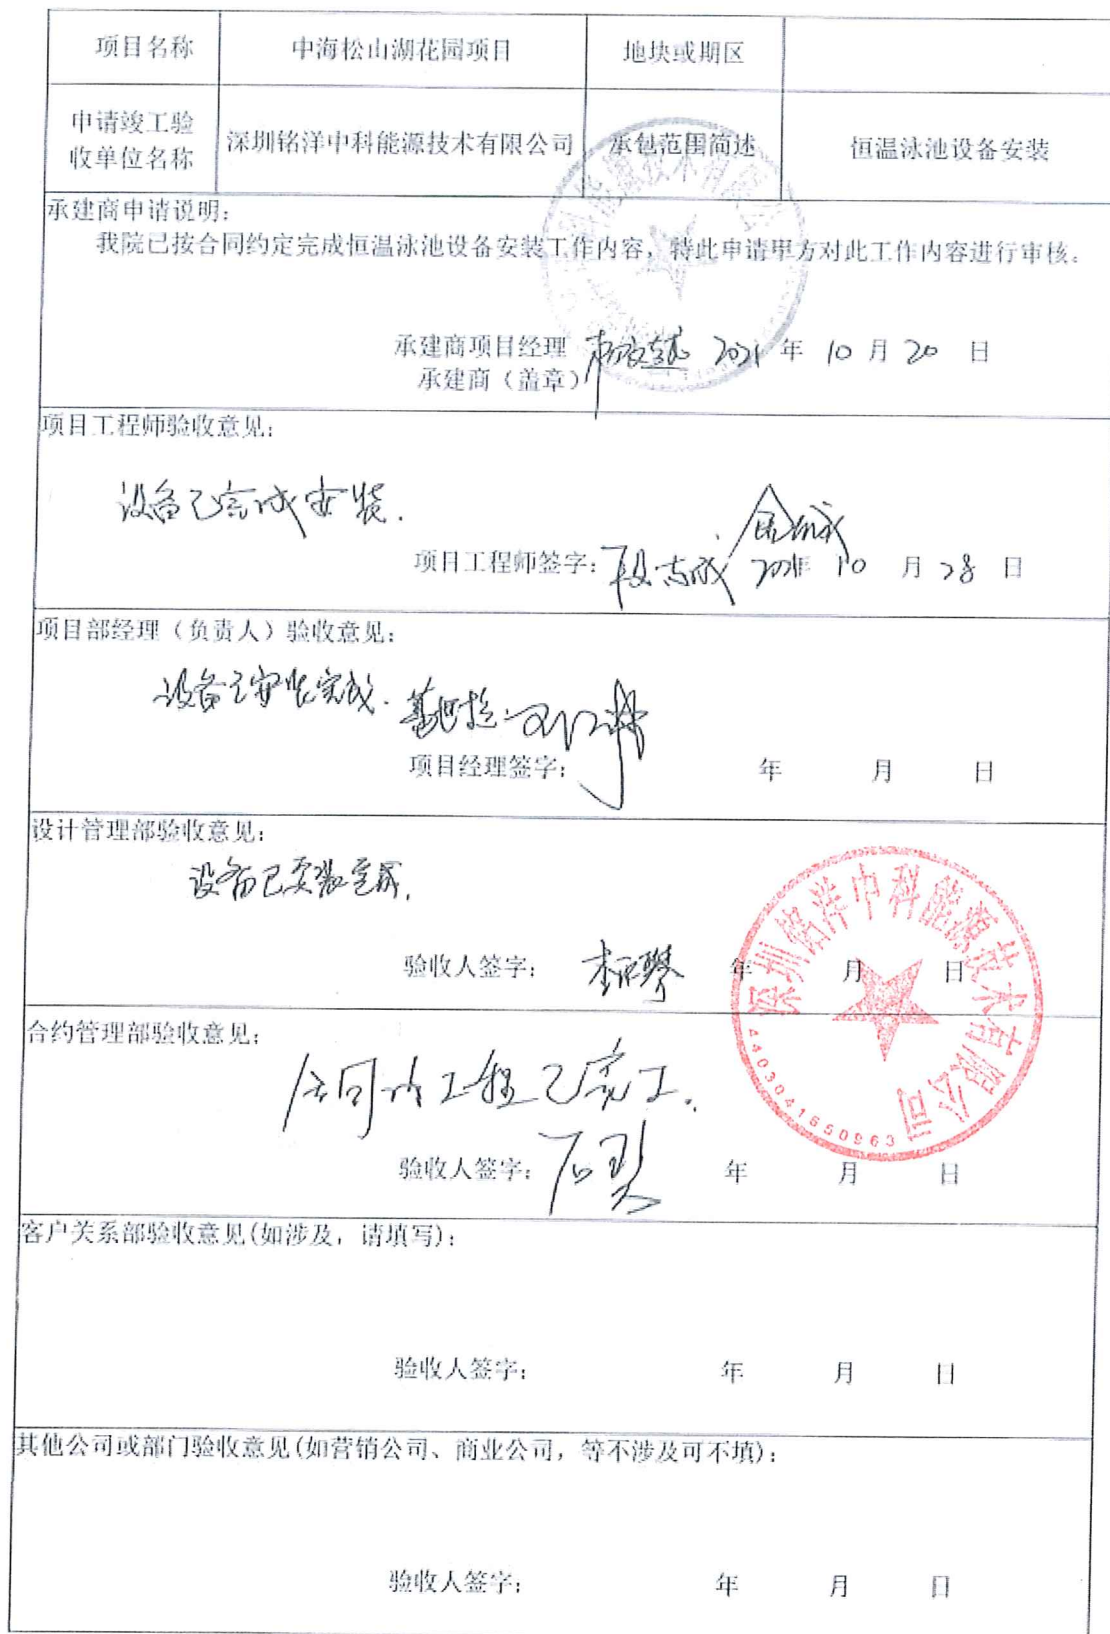 项目名称 中海松山湖花园项目 地块或期区
申请竣工验收单位名称 深圳铭洋中科能源技术有限公司 承包范围简述 恒温泳池设备安装
承建商申请说明：
我院已按合同约定完成恒温泳池设备安装工作内容，特此申请甲方对此工作内容进行审核。
承建商项目经理 2021 年 10 月 20 日
承建商（盖章）
项目工程师验收意见：
设备已完成安装.
项目工程师签字：段志成 2021年 10 月 28 日
项目部经理（负责人）验收意见：
设备已安装完成.
项目经理签字： 年 月 日
设计管理部验收意见：
设备已安装完毕.
验收人签字： 年 月 日
深圳铭洋中科能源技术有限公司
4403041650963
合约管理部验收意见：
合同内工程已完工.
验收人签字： 年 月 日
客户关系部验收意见(如涉及，请填写)：
验收人签字： 年 月 日
其他公司或部门验收意见(如营销公司、商业公司，等不涉及可不填)：
验收人签字： 年 月 日